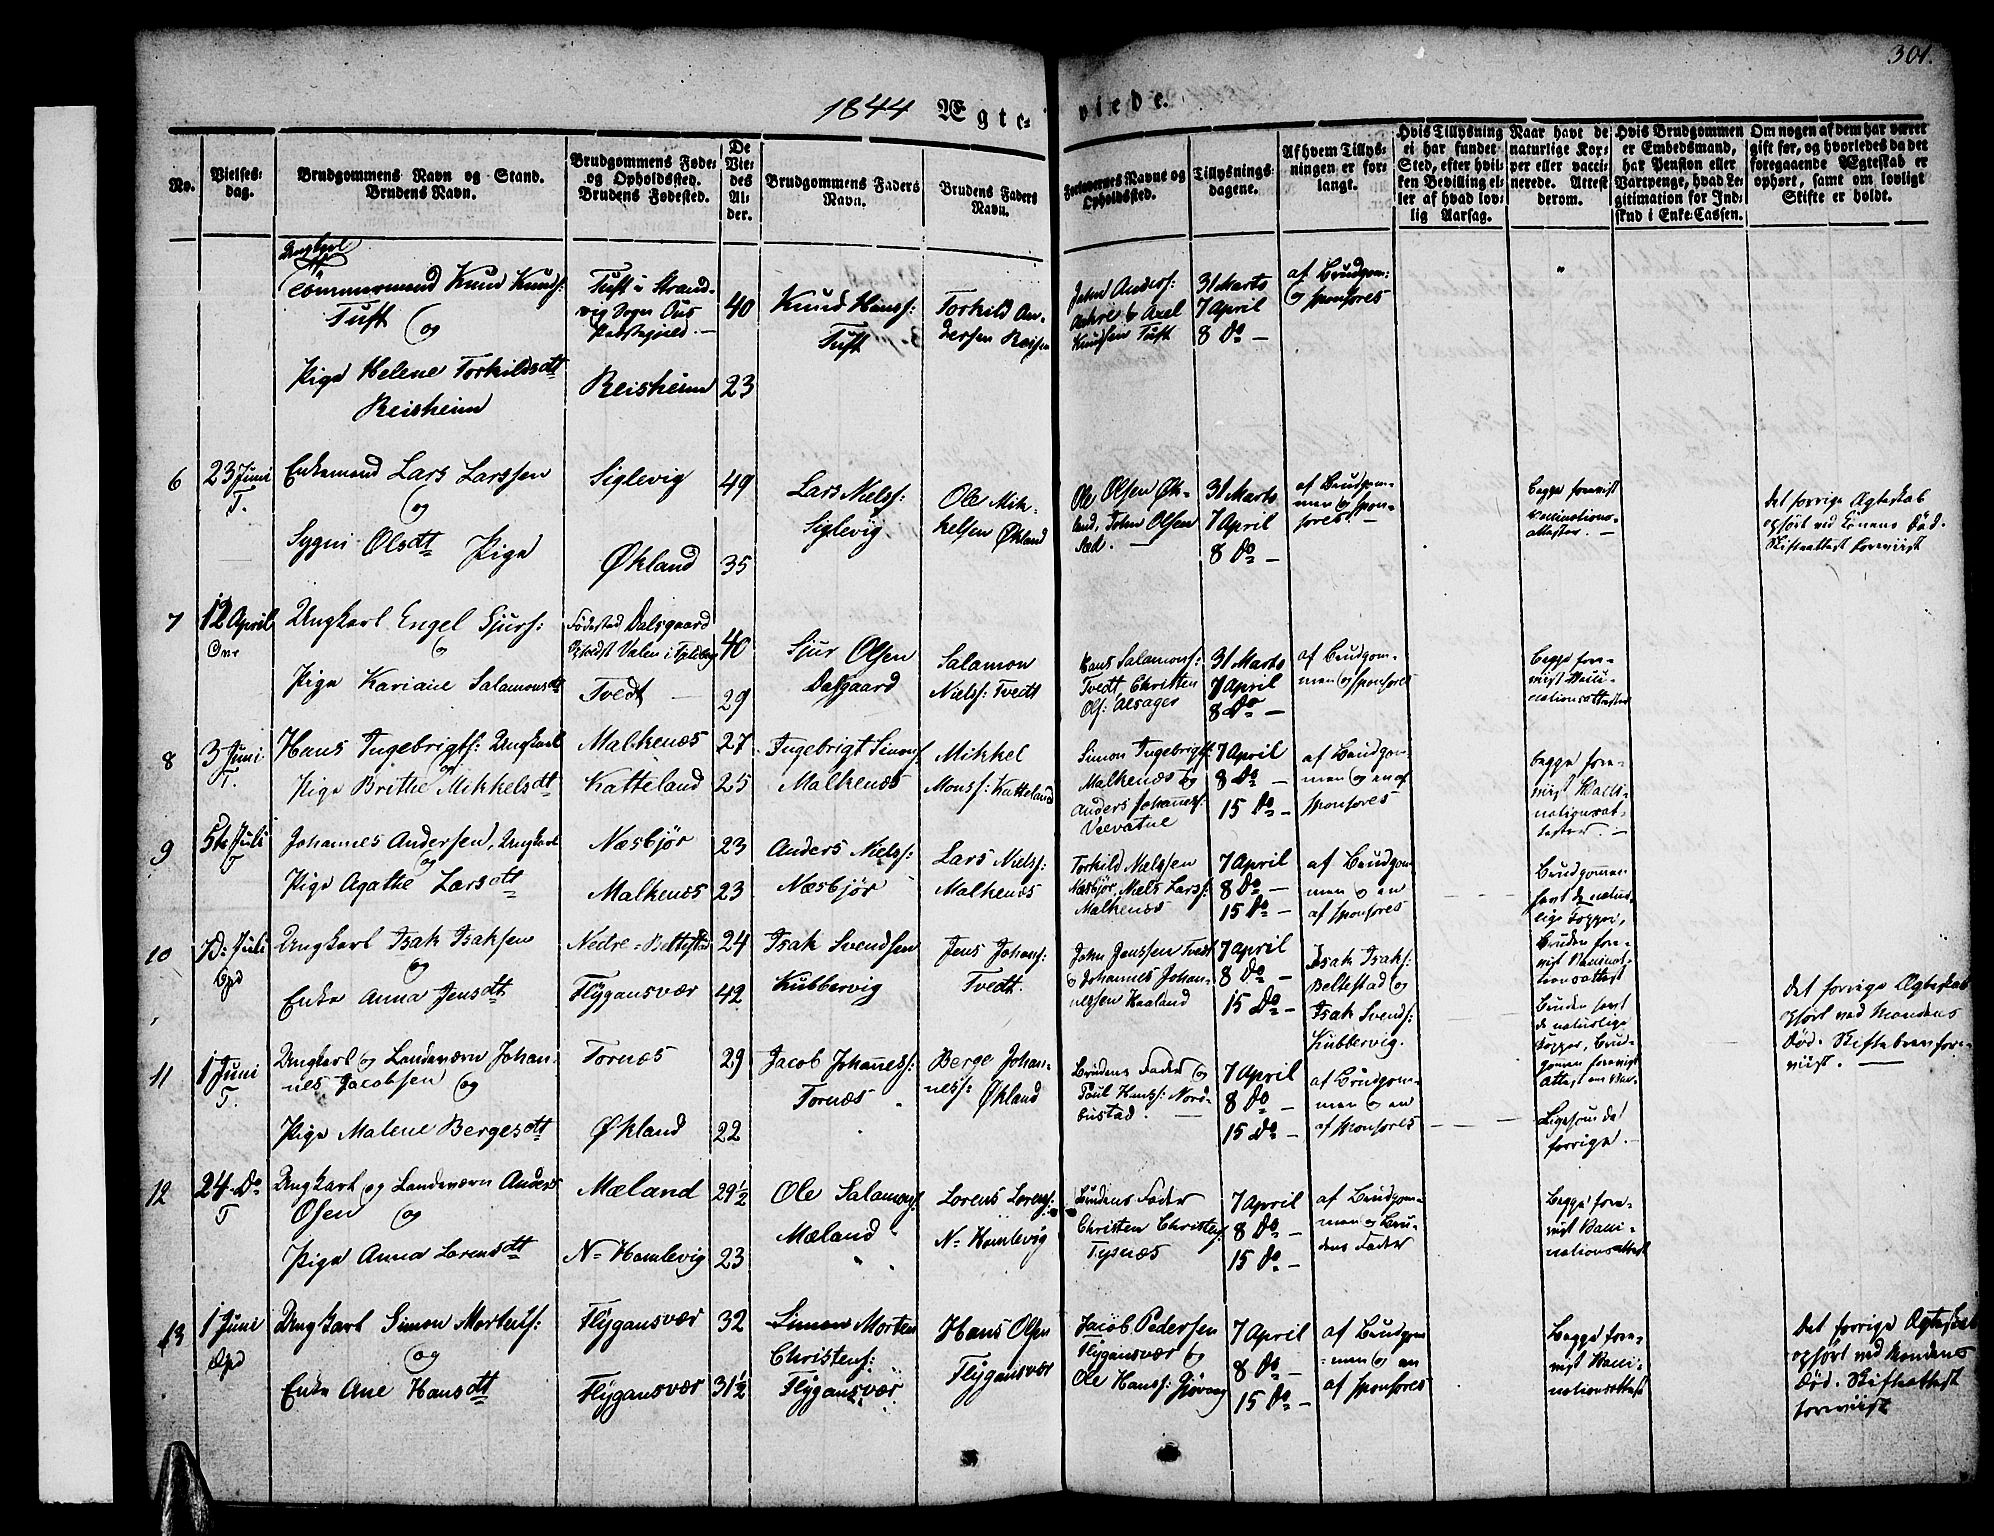 301.
1844 Ægte- viede.
No.
Vielses-
dag.
Brudgommens Navn og Stand.
Brudens Navn.
Brudgommens Føde-
og Opholdssted.
Brudens Fødested.
De
Vie-
des
Al-
der.
Brudgommens Faders
Navn.
Brudens Faders
Navn.
Forlovernes Navne og
Opholdssted.
Tillysnings-
dagene.
Af hvem Tillys-
ningen er for-
langt.
Hvis Tillysning
ei har fundet
Sted, efter hvil-
ken Bevilling el-
ler af hvad lov-
lig Aarsag.
Naar havt de
naturlige Kop-
per eller vacci-
nerede. Attest
derom.
Hvis Brudgommen
er Embedsmand,
har Pension eller
Vartpenge, hvad Le-
gitimation for Ind-
skud i Enke-Cassen.
Om nogen af dem har været
gift før, og hvorledes da det
foregaaende Ægteskab er
ophørt, samt om lovligt
Skifte er holdt.
Ungkarl
Tömmermand Knud Knuds:
Tuft og
Pige Helene Torkildsdtt
Reisheim
Tuft i Strand-
vig Sogn Ous
Præstegield.
Reisheim
40
23
Knud Hans:
Tuft
Torkild An-
dersen Reisem
John Anders:
Axel
Knudsen Tuft
31 Marts
7 April
8 Do
af Brudgom:
og sponsores
6
23 Juni
T.
Enkemand Lars Larssen
og
Sygni Olsdtt Pige
Siglevig
Økland
49
35
Lars Niels:
Siglevig.
Ole Mik-
kelsen Økland
Ole Olsen Øk-
land, John Olsen
Sæd.
31 Marts
7 April
8 Do
af Brudgom-
men og spon-
sores.
begge foreviist
Vaccinations-
attester.
Det forrige Ægteskab
ophört ved Konens Död.
Skifteattest foreviist
7
12 April
Ungkarl Engel Sjurs:
og
Pige Kariane Salamonsdtt
Födested Dalsgaard
Valen i
Tvedt
40
29
Sjur Olsen
Dalsgaard
Salamon
Niels: Tvedt
Hans Salamons:
Tvedt, Christen
Ols: Alsager
31 Marts
7 April
8 Do
af Brudgom-
men og sponsores
begge fore-
viist Vacci-
nationsattester
8
3 Juni
T.
Hans Ingebrigts: Ungkarl
og
Pige Brithe Mikkelsdtt
Malkenæs
Katteland
27
25
Ingebrigt Simons:
Malkenæs
Mikkel
Mons: Katteland
Simon Ingebrigts:
Malkenæs og
Anders Johannes:
Veevatne
7 April
8 Do
15 Do
af Brudgom-
men og en af
sponsores
begge fore-
viist Vacci-
nationsat-
tester.
9
5te Juli
T
Johannes Andersen, Ungkarl
og
Pige Agathe Larsdtt
Næsbjør
Malkenæs
23
23
Anders Niels:
Næsbjør
Lars Niels:
Malkenæs
Torkild Nielssen
Næsbjør, Niels Lars:
Malkenæs
7 April
8 Do
15 Do
af Brudgom
men og en
af sponsores
Brudgommen
havt de natur-
lige Kopper,
Bruden fore-
viist Vaccinat-
tionsattest
10
7 Juli
Opd
Ungkarl Isak Isaksen
og
Enke Anna Jensdtt
Nedre-Beltestad
Flygansvær
24
42
Isak Svendsen
Kubbervig
Jens Johans:
Tvedt.
John Jenssen Tvedt
og Johannes Johan-
nessen Haaland
7 April
8 Do
15 Do
Isak Isaks:
Beltestad og
Isak Svends:
Kubbervig.
Bruden havt
de naturlige
Kopper, Brud-
gommen foreviist
Attest om Vac-
Det forrige Ægteskab
ophört ved Mandens
Död. Skiftebrev fore-
viist.
11
1 Juni
T.
Ungkarl og Landeværn Johan-
nes Jacobsen og
Pige Malene Bergesdtt
Tornæs
Økland
29
22
Jacob Johannes:
Tornæs
Berge Johan-
nes: Økland
Brudens Fader og
Poul Hans: Nord-
bustad.
7 April
8 Do
15 Do
af Brudgom-
men og en
af sponsores
Ligesom det
forrige.
12
24 Do
T
Ungkarl og Landeværn Anders
Olsen og
Pige Anna Lorensdtt
Mæland
N= Hamlevig
29 1/2
23
Ole Salamons:
Mæland
Lorens Lorens:
N= Hamlevig
Brudens Fader
Christen Christens:
Tysnæs
7 April
8 Do
15 Do
af Brudgom-
men og Bru-
dens Fader
Begge fore-
viist Vacci-
nationsattest
13
1 Juni
Opd
Ungkarl Simon Mortens:
og
Enke Ane Hansdtt
Flygansvær
Flygansvær
32
31 1/2
Simon Morten
Christens:
Flygansvær
Hans Olsen
Flygansvær
Jacob Pedersen
Flygansvær og
Ole Hans: Gjøvaag
7 April
8 Do
15 Do
af Brudgom
men og en
af sponsores
Begge fore-
viist Vacci-
nationsattest
Det forrige Ægteskab
ophört ved Mandens
Död. Skifteattest
foreviist